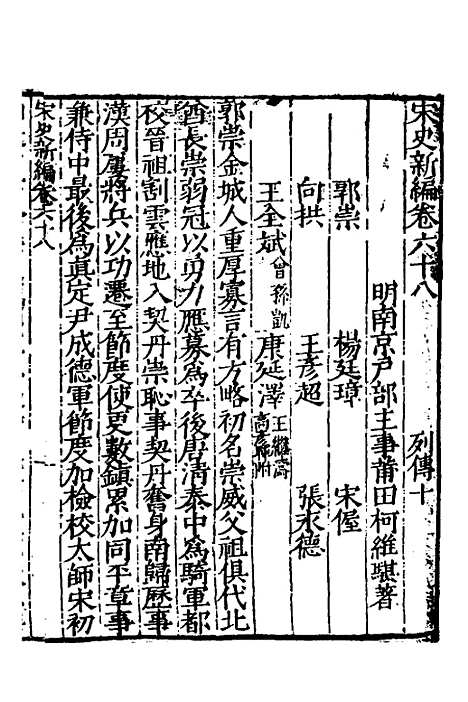 宋史新編卷六十八 列傳十
明南京戶部主事莆田柯維騏著
郭崇 楊廷璋 宋偓
向拱 王彥超 張永德
王全斌曾孫凱 康延澤王繼濤高彥暉附
郭崇金城人重厚寡言有方略初名崇威父祖俱代北
酋長崇弱冠以勇力應募為卒後唐清泰中為騎軍都
校晉祖割雲應地入契丹崇恥事契丹奮身南歸歷事
漢周屢將兵以功遷至節度使更數鎮累加同平章事
兼侍中最後為真定尹成德軍節度加檢校太師宋初
宋史新編卷六十八 一